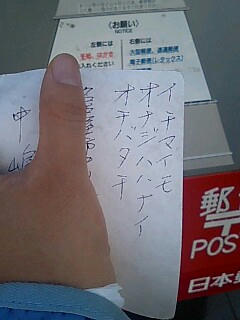 〈お願い〉
NOTICE
左側には
手紙、はがき
入れください
右側には
大型郵便、速達郵便
電子郵便（レタックス）
イチマイモ
オナジハハナイ
オチバタチ
中嶋
郵
POS
日本郵